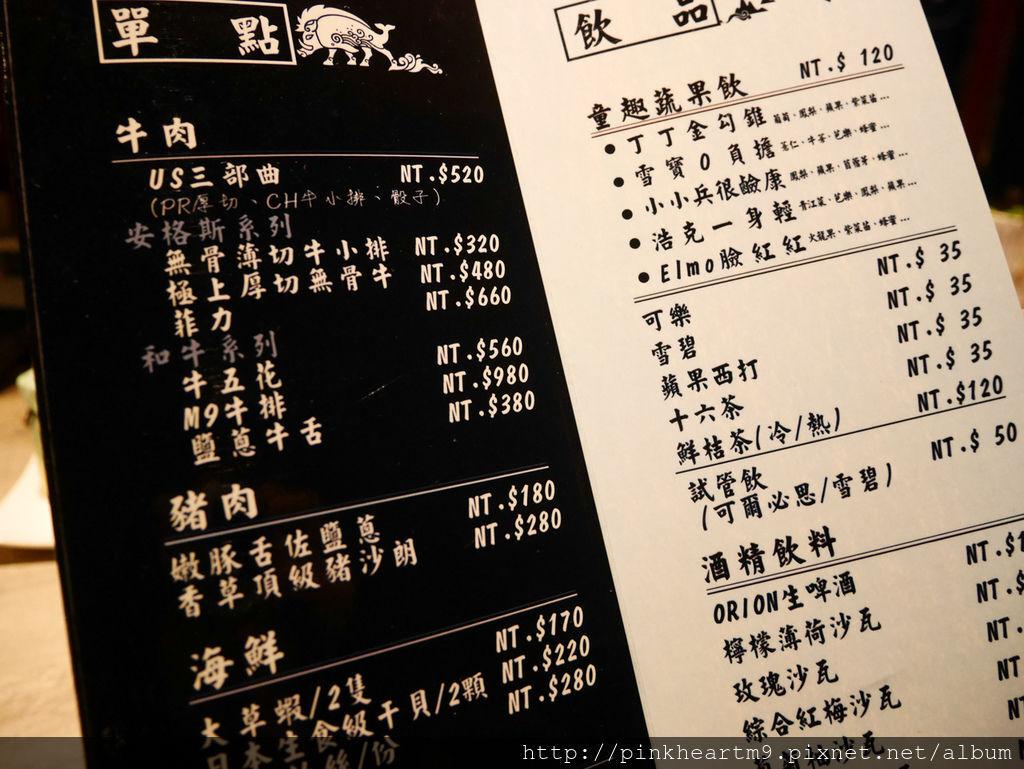 單點
牛肉
US三部曲 NT.$520
(PR厚切、CH牛小排、骰子)
安格斯系列
無骨薄切牛小排 NT.$320
極上厚切無骨牛 NT.$480
菲力 NT.$660
和牛系列
牛五花 NT.$560
M9牛排 NT.$980
鹽蔥牛舌 NT.$380
豬肉
嫩豚舌佐鹽蔥 NT.$180
香草頂級豬沙朗 NT.$280
海鮮
大草蝦/2隻 NT.$170
日本生食級干貝/2顆 NT.$220
/份 NT.$280
飲品
童趣蔬果飲 NT.$ 120
●丁丁金勾錐 葡萄、鳳梨、蘋果、紫菜蘇...
●雪寶0負擔 薏仁、牛蒡、芭樂、蜂蜜...
●小小兵很鹼康 鳳梨、蘋果、苜蓿芽、蜂蜜...
●浩克一身輕 青江菜、芭樂、鳳梨、蘋果...
●Elmo臉紅紅 火龍果、紫菜蘇、蜂蜜...
可樂 NT.$ 35
雪碧 NT.$ 35
蘋果西打 NT.$ 35
十六茶 NT.$ 35
鮮桔茶(冷/熱) NT.$120
試管飲 NT.$ 50
(可爾必思/雪碧)
酒精飲料
ORION生啤酒 NT.$1
檸檬薄荷沙瓦 NT.$
玫瑰沙瓦 NT.
綜合紅梅沙瓦 NT
柚沙瓦 N
http://pinkheartm9.pixnet.net/album